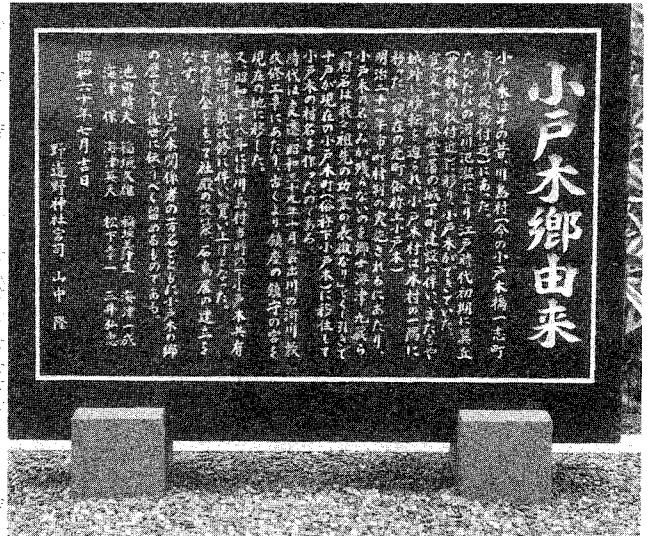 小戸木郷由来
小戸木はその昔、川島村（今の小戸木橋一志町
寄りの堤防付近）にあった。
たびたびの河川氾濫により江戸時代初期に異丘
に移り、小戸木ができていた。
城下町建設に伴い、またもや
城外に移転を迫られ、小戸木村は本村の一隅に
移った。（現在の元町俗称上小戸木）
明治二十二年市町村制の実施されるにあたり、
小戸木の名のみが残らないのを郷士海津九蔵ら
「村名は我らの祖先の功業の表徴なり」として引きて
十戸が現在の小戸木町（俗称下小戸木）に移住して
小戸木の村名を作ったのである。
時代は変遷昭和三十九年十月雲出川の河川敷
改修工事にあたり、古くより鎮座の鎮守の宮を
現在の地に移した。
又昭和五十八年には川島村当時の小戸木共有
地が河川敷改修に伴い、買い上げとなった。
その資金をもって社殿の改築、石鳥居の建立を
なす。
ここに小戸木関係者の一言名とともに小戸木の郷
の歴史を後世に伝うべく留めるものである。
池田晴夫 稲垣久雄 海津一成
海津保 海津英夫 松下 三井弘忠
昭和六十年七月吉日
野辺野神社宮司 山中 隆